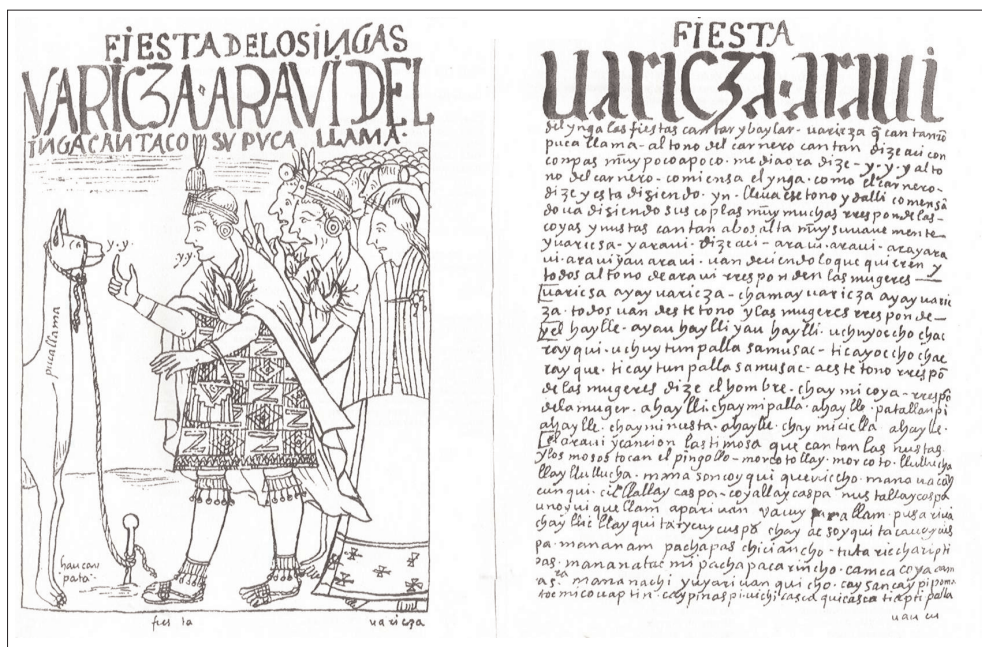 FIESTA DELOSINGAS
VARICZA·ARAVI DEL
INGACANTACO SVPVCA LLAMA·
y·y·
y·y·
pucallama
haucay
pata
fiesta
uaricza
FIESTA
uaricza·araui
del ynga las fiestas cantar y baylar · uaricza q̃
puca llama - al tono del carnero cantan dize aci con
conpas muy poco a poco · media ora dize - y·y·y al to
no del carnero · comiensa el ynga · como el carnero -
dize y esta diziendo · yn · lleua ese tono y dalli comensã
do ua diziendo sus coplas muy muchas rresponde las -
coyas y nustas cantan a bos alta muy suauemente
y uaricsa - y araui · dize aci - araui · araui - arayara
ui · araui yau araui · uan deciendo lo que quieren y
todos al tono de araui rresponden las mugeres
uaricsa ayay uaricza - chamay uaricza ayay uaric
za · todos uan deste tono y las mugeres rresponde -
yel haylle · ayau haylli yau haylli · uchuyoccho chac
rayqui · uchuy tunpalla samusac - ticayoccho chac
rayque · ticay tunpalla samusac - a este tono rrespõ
de las mugeres dize el hombre · chaymi coya - rrespõ
de la muger · ahaylli chaymi palla · ahaylle · patallanpi
ahaylle · chaymi nusta · ahaylle · chaymi ciclla ahaylle ·
el araui y cancion lastimosa que cantan las nustas
y los mosos tocan el pingollo - morcotollay · morcoto · llullucha
llay llullucha · mana soncoyqui queuiccho · mana uacay
cunqui · cicllallay caspa - coyallay caspa nustallay caspa
unoy uiquellam apariuan yacuy parallam pusariua
chay lliclla
pa · mananam pachapas chiciancho - tuta riccharipti
pas · mananatacmi pacha pacarincho · camca coya cam
as · mamanachi yuyariuanquicho · cay sancay pi poma
atoc micouaptin · cay pinaspi uichicasca quicasca tiapti palla